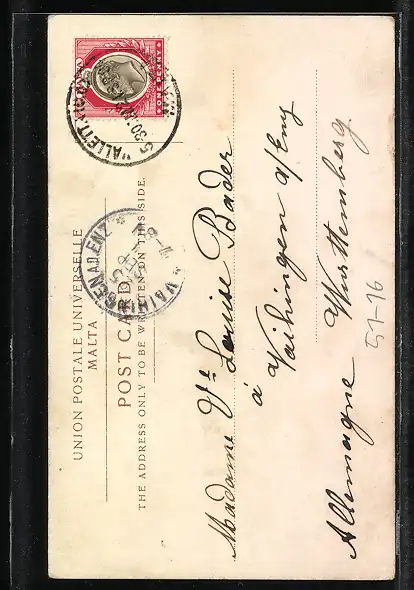 UNION POSTALE UNIVERSELLE
MALTA
POST CARD
THE ADDRESS ONLY TO BE WRITTEN ON THIS SIDE.
ONE PENNY
VALLETTA
VAIHINGEN A.D. ENZ
Madame Vᵗ Louise Bader
à Vaihingen a/Enz
Allemagne Württemberg
51-16